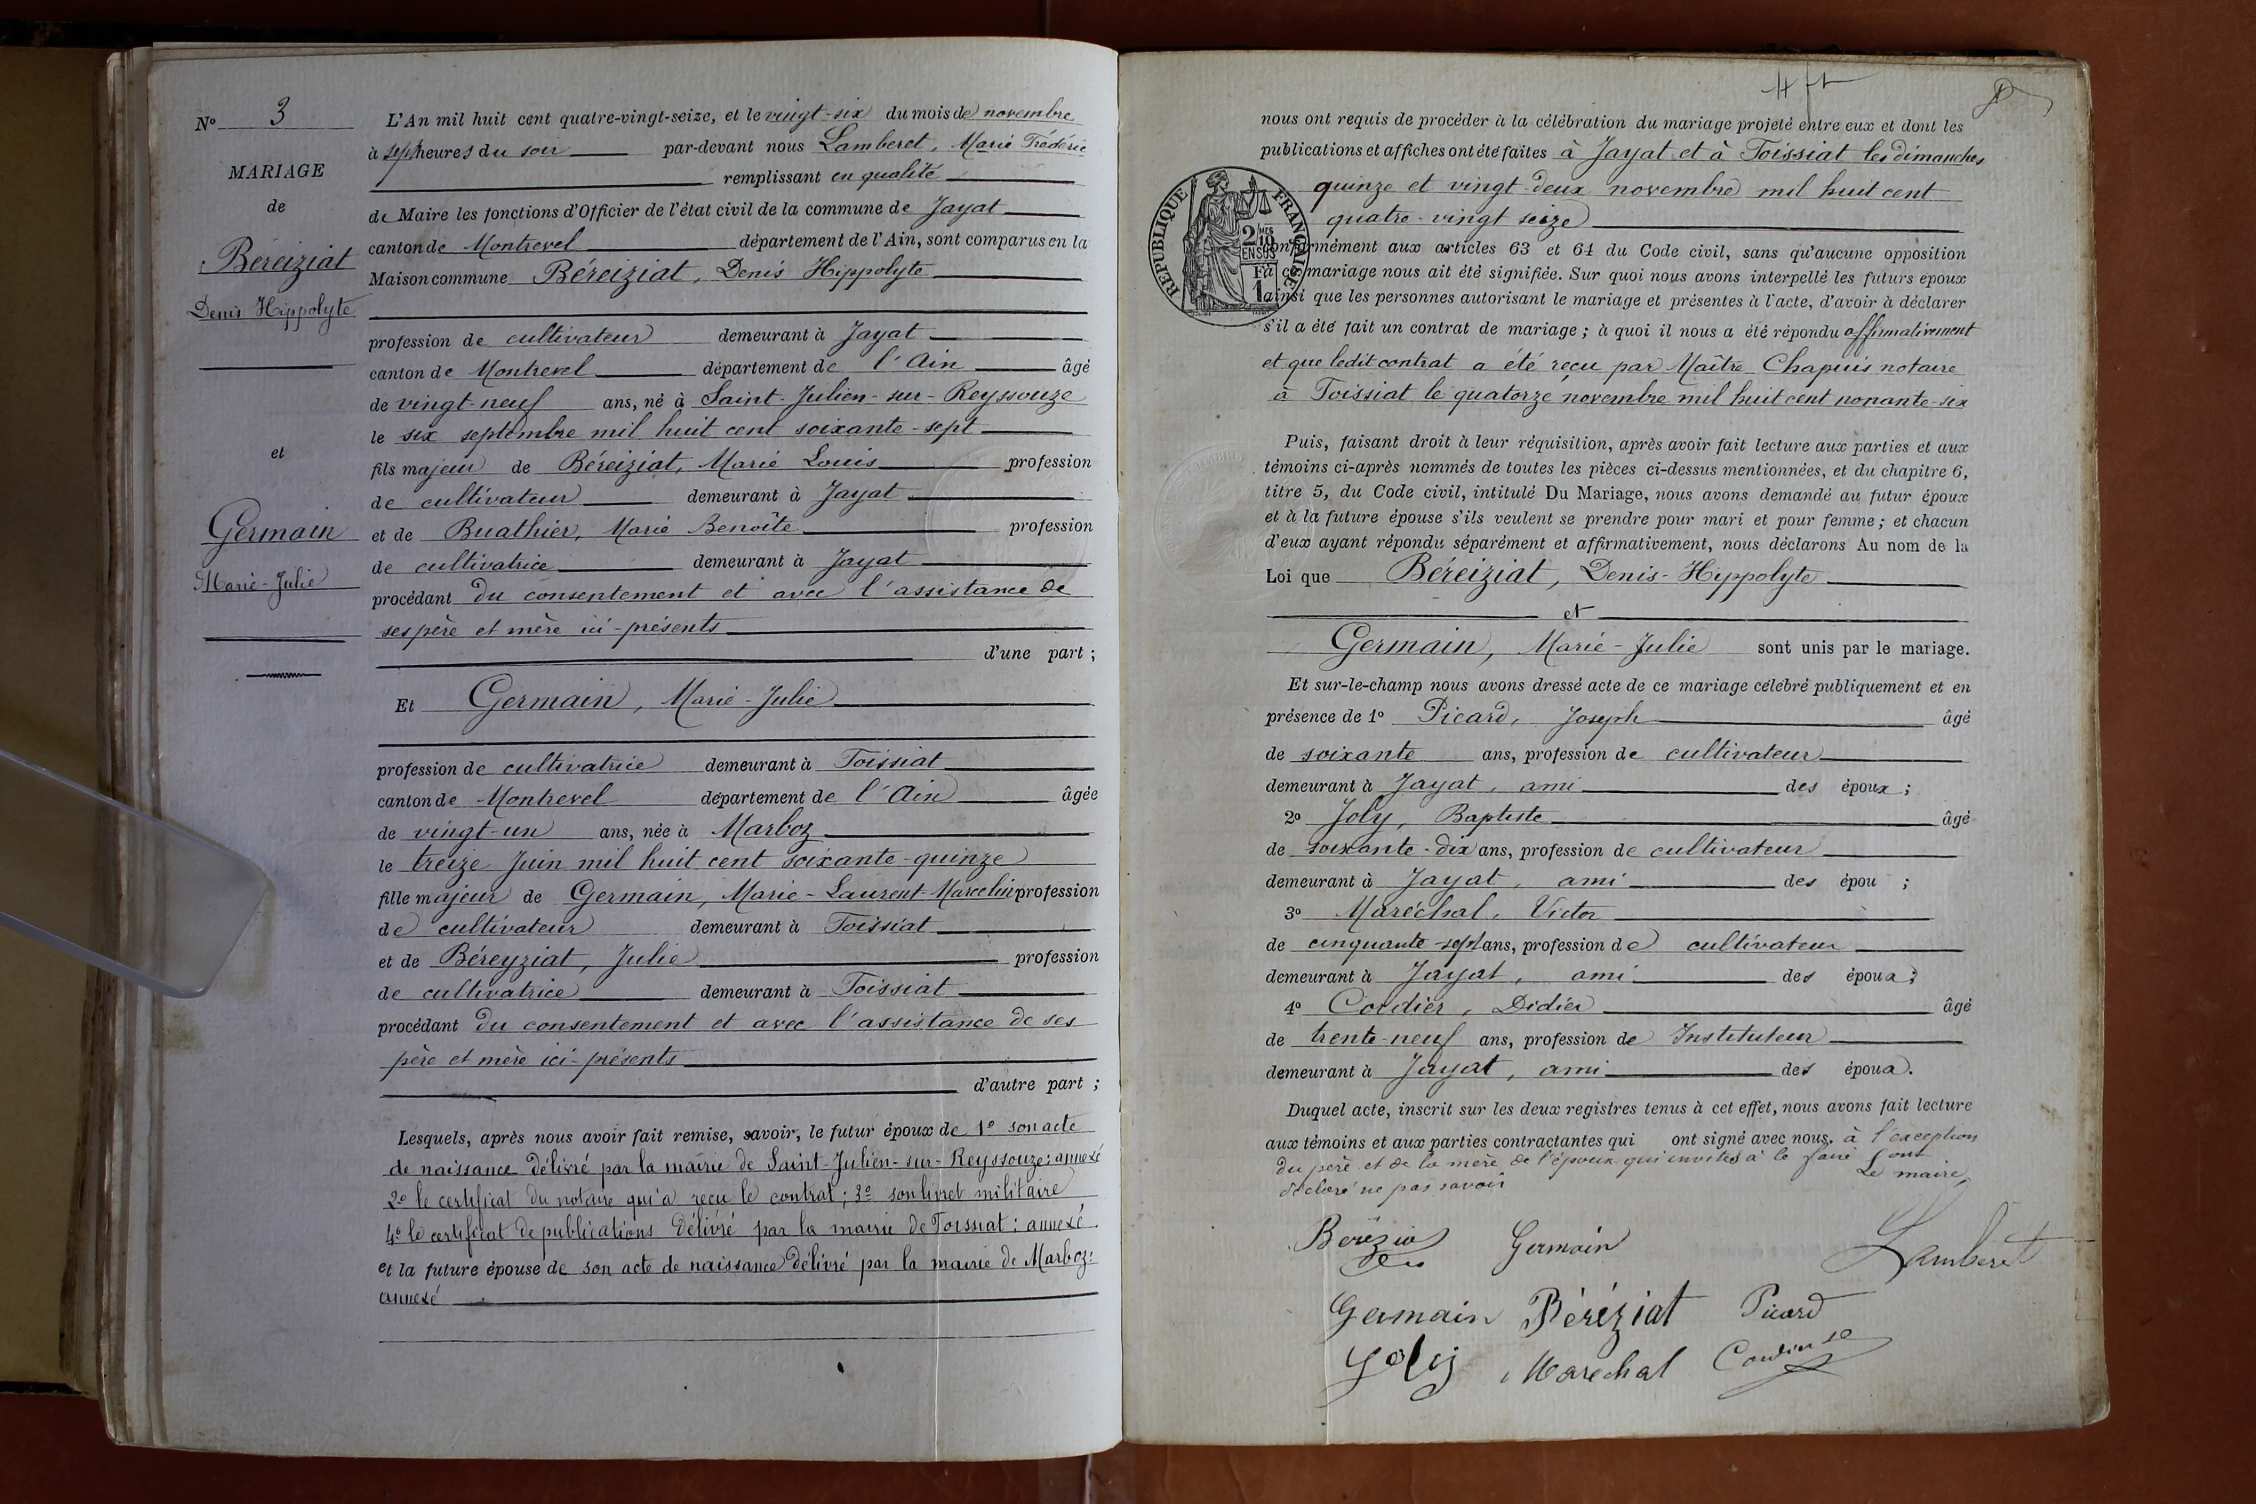 No 3
MARIAGE
de
Béreiziat
Denis Hippolyte
et
Germain
Marie-Julie
L'An mil huit cent quatre-vingt-seize, et le vingt-six du mois de novembre
à sept heures du soir par-devant nous Lamberet, Marie Frédéric
remplissant en qualité
de Maire les fonctions d'Officier de l'état civil de la commune de Jayat
canton de Montrevel département de l'Ain, sont comparus en la
Maison commune Béreiziat, Denis Hippolyte
profession de cultivateur demeurant à Jayat
canton de Montrevel département de l'Ain âgé
de vingt-neuf ans, né à Saint-Julien-sur-Reyssouze
le six septembre mil huit cent soixante-sept
fils majeur de Béreiziat, Marie Louis profession
de cultivateur demeurant à Jayat
et de Buathier, Marie Benoîte profession
de cultivatrice demeurant à Jayat
procédant du consentement et avec l'assistance de
ses père et mère ici-présents
d'une part ;
Et Germain, Marie-Julie
profession de cultivatrice demeurant à Foissiat
canton de Montrevel département de l'Ain âgée
de vingt-un ans, née à Marboz
le treize Juin mil huit cent soixante-quinze
fille majeur de Germain, Marie-Laurent-Marcelin profession
de cultivateur demeurant à Foissiat
et de Béreyziat, Julie profession
de cultivatrice demeurant à Foissiat
procédant du consentement et avec l'assistance de ses
père et mère ici-présents
d'autre part ;
Lesquels, après nous avoir fait remise, savoir, le futur époux de 1º son acte
de naissance délivré par la mairie de Saint-Julien-sur-Reyssouze: annexé
2º le certificat du notaire qui a reçu le contrat; 3º son livret militaire
4º le certificat de publications délivré par la mairie de Foissiat: annexé
et la future épouse de son acte de naissance délivré par la mairie de Marboz:
annexé
nous ont requis de procéder à la célébration du mariage projeté entre eux et dont les
publications et affiches ont été faites à Jayat et à Foissiat les dimanches
quinze et vingt-deux novembre mil huit cent
quatre-vingt seize
RÉPUBLIQUE FRANÇAISE
2 10 MES
EN SUS
1 F
conformément aux articles 63 et 64 du Code civil, sans qu'aucune opposition
à ce mariage nous ait été signifiée. Sur quoi nous avons interpellé les futurs époux
ainsi que les personnes autorisant le mariage et présentes à l'acte, d'avoir à déclarer
s'il a été fait un contrat de mariage ; à quoi il nous a été répondu affirmativement
et que ledit contrat a été reçu par Maître Chapuis notaire
à Foissiat le quatorze novembre mil huit cent nonante-six
Puis, faisant droit à leur réquisition, après avoir fait lecture aux parties et aux
témoins ci-après nommés de toutes les pièces ci-dessus mentionnées, et du chapitre 6,
titre 5, du Code civil, intitulé Du Mariage, nous avons demandé au futur époux
et à la future épouse s'ils veulent se prendre pour mari et pour femme ; et chacun
d'eux ayant répondu séparément et affirmativement, nous déclarons Au nom de la
Loi que Béreiziat, Denis-Hippolyte
et
Germain, Marie-Julie sont unis par le mariage.
Et sur-le-champ nous avons dressé acte de ce mariage célébré publiquement et en
présence de 1º Picard, Joseph âgé
de soixante ans, profession de cultivateur
demeurant à Jayat, ami des époux ;
2º Joly, Baptiste âgé
de soixante-dix ans, profession de cultivateur
demeurant à Jayat, ami des épou ;
3º Maréchal, Victor
de cinquante-sept ans, profession de cultivateur
demeurant à Jayat, ami des époux ;
4º Cordier, Didier âgé
de trente-neuf ans, profession de Instituteur
demeurant à Jayat, ami des époux.
Duquel acte, inscrit sur les deux registres tenus à cet effet, nous avons fait lecture
aux témoins et aux parties contractantes qui ont signé avec nous, à l'exception
du père et de la mère de l'époux qui invités à le faire ont
déclaré ne pas savoir Le maire,
Germain
Lamberet
Germain Béréziat Picard
Joly Maréchal Cordier